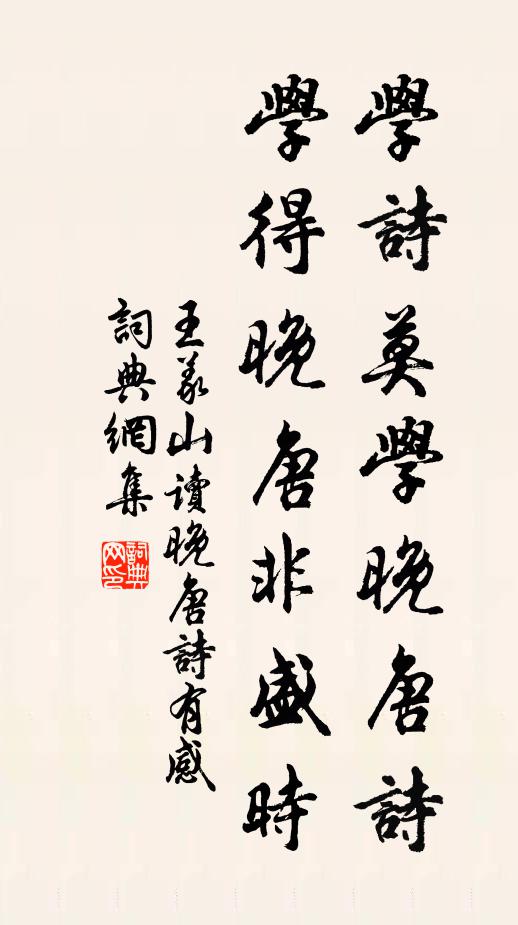 學詩莫學晚唐詩
學得晚唐非盛時
王義山讀晚唐詩有感
詞典網集
詞典网印